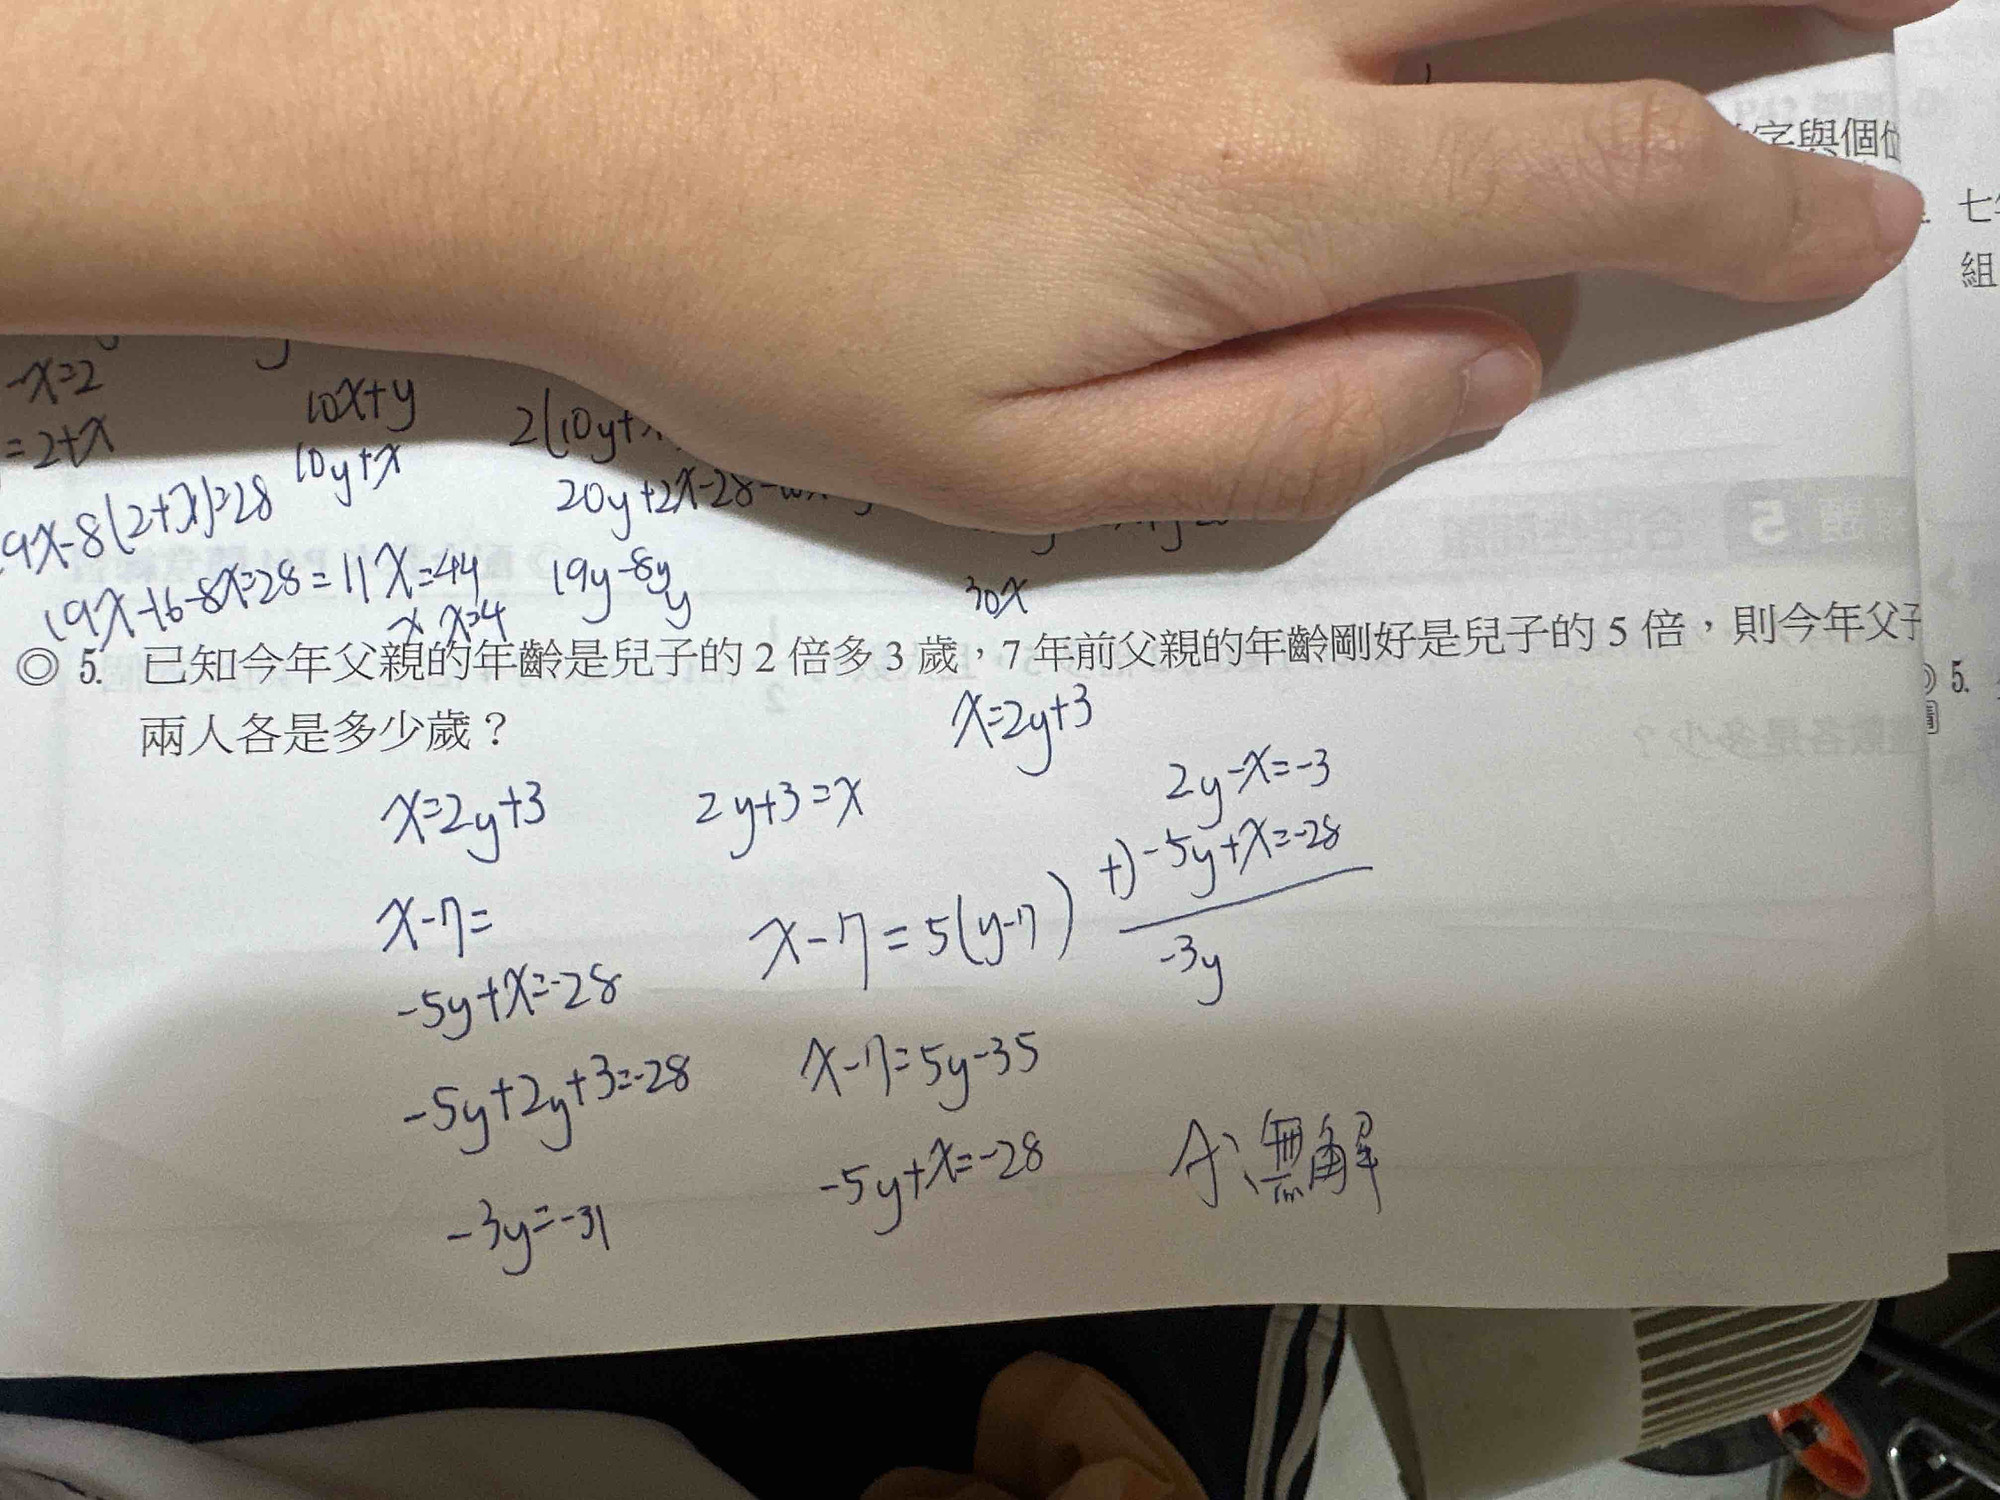 字與個位
七年
組
-x=2
=2+x
10x+y
10y+x
2(10y+x
20y+2x-28
19x-8(2+x)=28
19x-16-8x=28=11x=44
x x=4
19y-8y
y
30x
◎ 5. 已知今年父親的年齡是兒子的 2 倍多 3 歲，7 年前父親的年齡剛好是兒子的 5 倍，則今年父子
兩人各是多少歲？
5.
x=2y+3
x=2y+3
2y+3=x
2y-x=-3
+) -5y+x=-28
-3y
x-7=
x-7=5(y-7)
-5y+x=-28
x-7=5y-35
-5y+2y+3=-28
-5y+x=-28
-3y=-31
A:無解